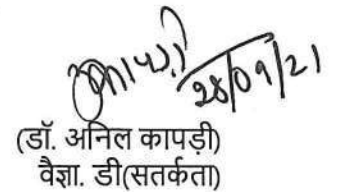 28/09/21
(डॉ. अनिल कापड़ी)
वैज्ञा. डी(सतर्कता)